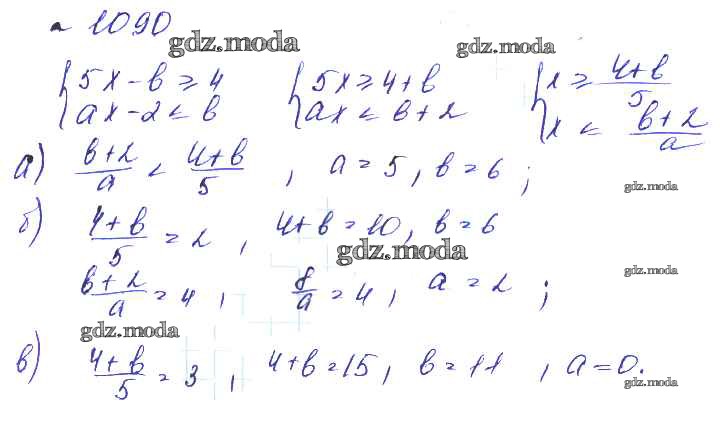 № 1090
gdz.moda gdz.moda
{5x - b ≥ 4 {5x ≥ 4+b {x ≥ (4+b)/5
{ax - 2 < b {ax < b+2 {x < (b+2)/a
а) (b+2)/a < (4+b)/5 , a = 5, b = 6 ; gdz.moda
б) (4+b)/5 = 2 , 4+b = 10, b = 6
gdz.moda gdz.moda
(b+2)/a = 4 , 8/a = 4, a = 2 ;
gdz.moda
в) (4+b)/5 = 3 , 4+b = 15, b = 11 , a = 0.
gdz.moda